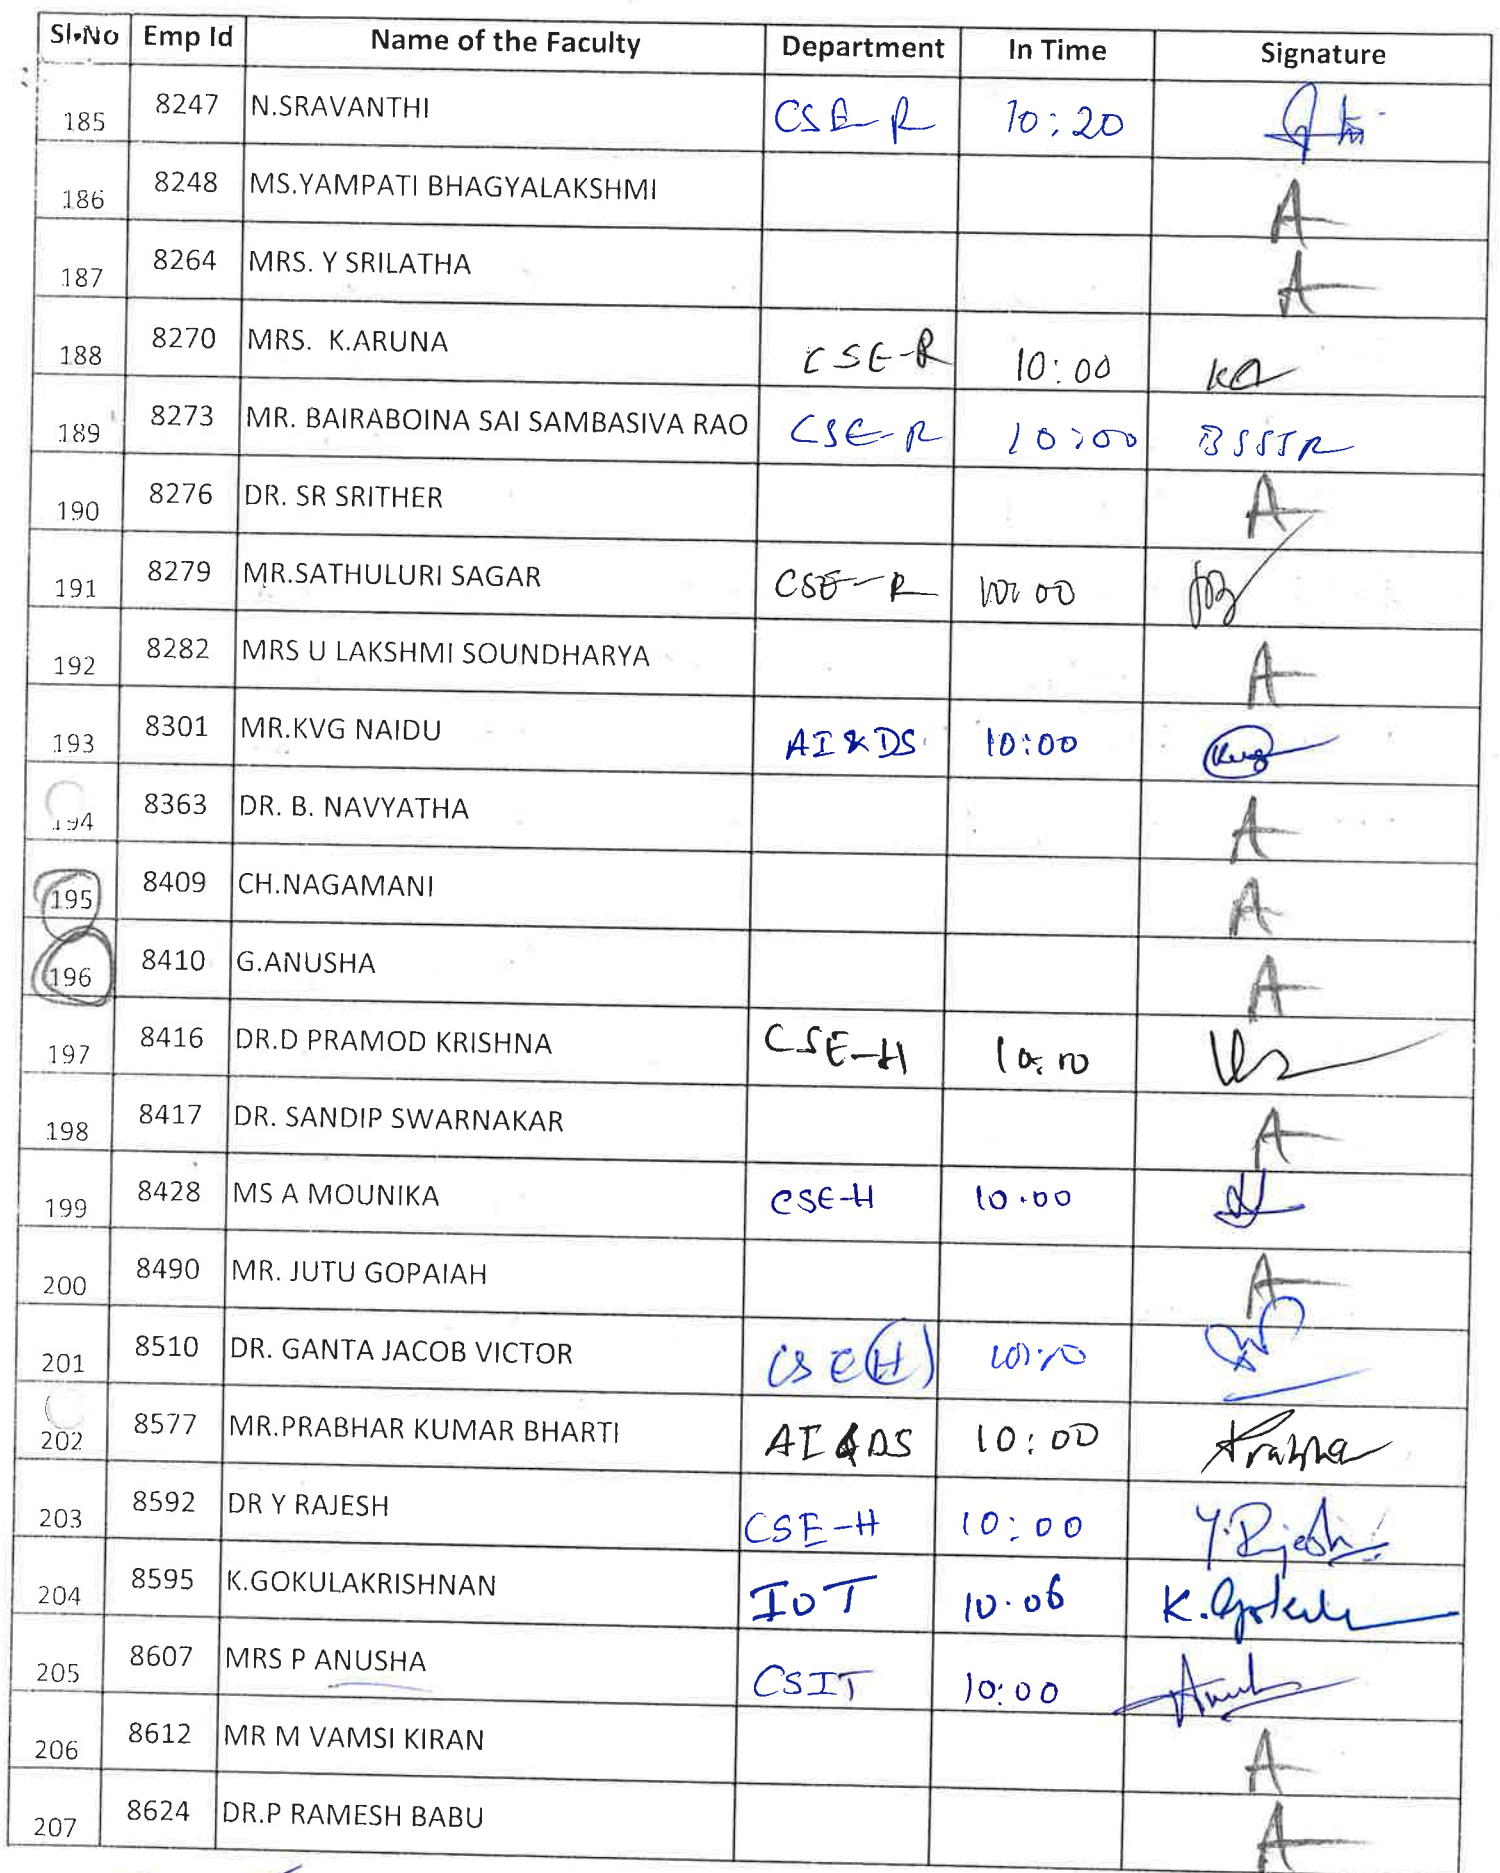 Sl.No Emp Id Name of the Faculty Department In Time Signature
185 8247 N.SRAVANTHI CSE-R 10:20
186 8248 MS.YAMPATI BHAGYALAKSHMI A
187 8264 MRS. Y SRILATHA A
188 8270 MRS. K.ARUNA CSE-R 10:00 KA
189 8273 MR. BAIRABOINA SAI SAMBASIVA RAO CSE-R 10:00 BSSSR
190 8276 DR. SR SRITHER A
191 8279 MR.SATHULURI SAGAR CSE-R 10:00
192 8282 MRS U LAKSHMI SOUNDHARYA A
193 8301 MR.KVG NAIDU AI&DS 10:00 Kvg
194 8363 DR. B. NAVYATHA A
195 8409 CH.NAGAMANI A
196 8410 G.ANUSHA A
197 8416 DR.D PRAMOD KRISHNA CSE-H 10:10
198 8417 DR. SANDIP SWARNAKAR A
199 8428 MS A MOUNIKA CSE-H 10.00
200 8490 MR. JUTU GOPAIAH A
201 8510 DR. GANTA JACOB VICTOR CSE(H) 10:10
202 8577 MR.PRABHAR KUMAR BHARTI AI&DS 10:00 Prabha
203 8592 DR Y RAJESH CSE-H 10:00 Y.Rajesh
204 8595 K.GOKULAKRISHNAN IOT 10.06 K.Gokul
205 8607 MRS P ANUSHA CSIT 10:00
206 8612 MR M VAMSI KIRAN A
207 8624 DR.P RAMESH BABU A